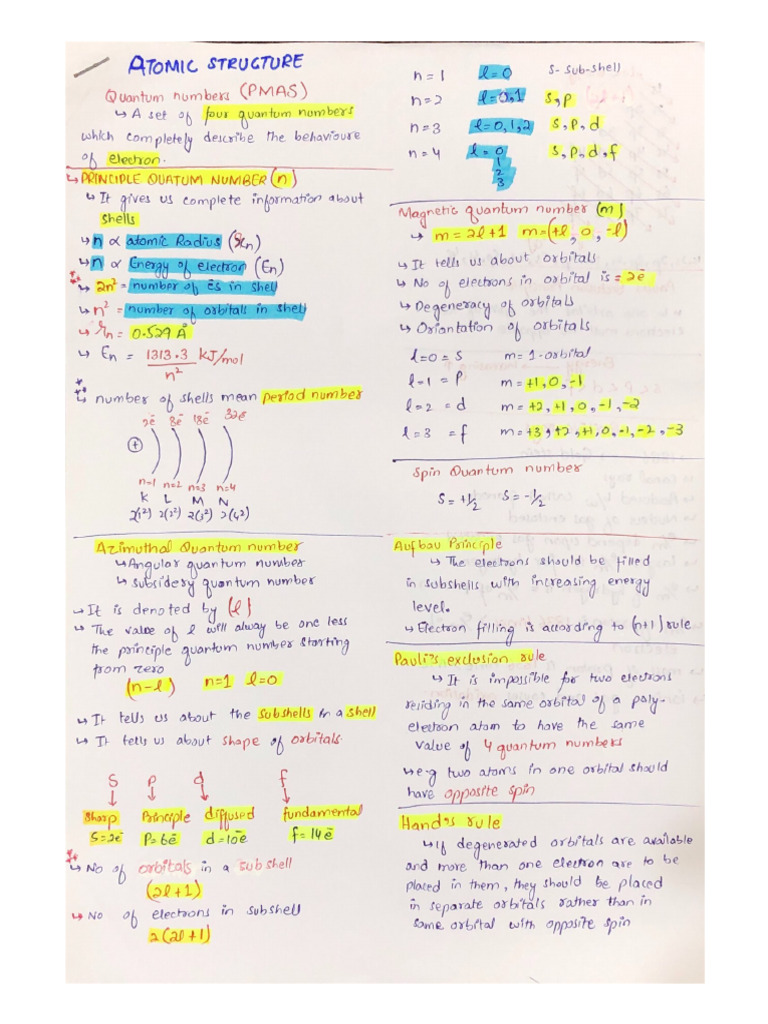 ATOMIC STRUCTURE
Quantum numbers (PMAS)
↳ A set of four quantum numbers
which completely describe the behavioure
of electron.
↳ PRINCIPLE QUATUM NUMBER (n)
↳ It gives us complete information about
shells
↳ n ∝ atomic Radius (rn)
↳ n ∝ Energy of electron (En)
↳ 2n² = number of ēs in shell
↳ n² = number of orbitals in shell
↳ rn = 0.529 Å
↳ En = 1313.3 kJ/mol
n²
↳ number of shells mean period number
2ē 8ē 18ē 32ē
(+)
n=1 n=2 n=3 n=4
K L M N
2(1²) 2(2²) 2(3²) 2(4²)
Azimuthal Quantum number
↳ Angular quantum number
↳ subsidery quantum number
↳ It is denoted by (l)
↳ The value of l will alway be one less
the principle quantum number starting
from zero
(n-l) n=1 l=0
↳ It tells us about the subshells in a shell
↳ It tells us about shape of orbitals.
S P d f
↓ ↓ ↓ ↓
Sharp Principle diffused fundamental
S=2ē P=6ē d=10ē f=14ē
↳ No of orbitals in a sub shell
(2l+1)
↳ No of electrons in subshell
2(2l+1)
n=1 l=0 s- sub-shell
n=2 l=0,1 s,p
n=3 l=0,1,2 s,p,d
n=4 l=0 s,p,d,f
1
2
3
Magnetic quantum number (m)
↳ m = 2l+1 m=(+l, 0, -l)
↳ It tells us about orbitals
↳ No of electrons in orbital is = 2ē
↳ Degeneracy of orbitals
↳ Orientation of orbitals
l=0 = s m= 1-orbital
l=1 = p m= +1, 0, -1
l=2 = d m= +2, +1, 0, -1, -2
l=3 = f m= +3, +2, +1, 0, -1, -2, -3
Spin Quantum number
S = +1/2 S = -1/2
Aufbau Principle
↳ The electrons should be filled
in subshells with increasing energy
level.
↳ Electron filling is according to (n+1) rule
Pauli's exclusion rule
↳ It is impossible for two electrons
residing in the same orbital of a poly-
electron atom to have the same
value of 4 quantum numbers
↳ e-g two atoms in one orbital should
have opposite spin
Hand's rule
↳ If degenerated orbitals are available
and more than one electron are to be
placed in them, they should be placed
in separate orbitals rather than in
same orbital with opposite spin